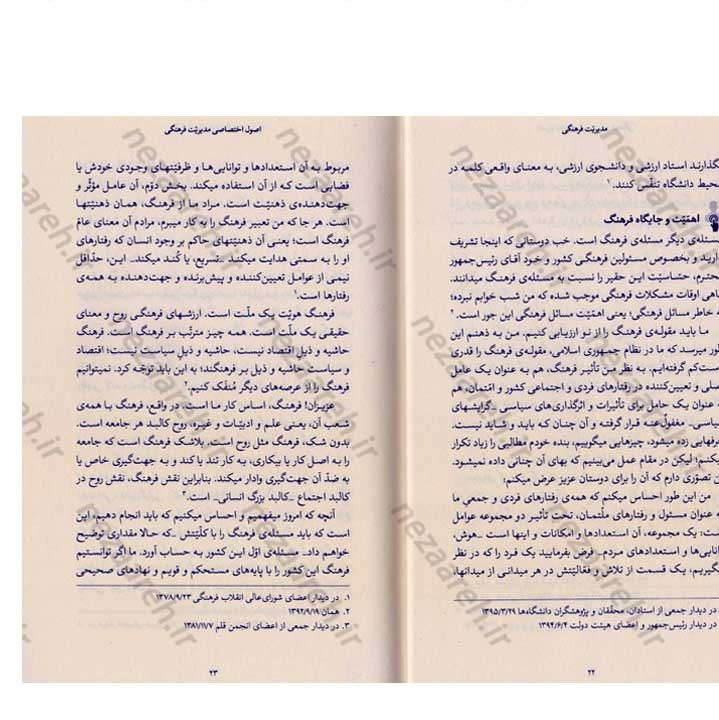 مدیریّت فرهنگی
بگذارند استاد ارزشی و دانشجوی ارزشی، به معنای واقعی کلمه در
محیط دانشگاه تنفّس کنند.۱
اهمّیّت و جایگاه فرهنگ
مسئله‌ی دیگر مسئله‌ی فرهنگ است. خب دوستانی که اینجا تشریف
دارید و بخصوص مسئولین فرهنگی کشور و خود آقای رئیس‌جمهور
محترم، حسّاسیّت این حقیر را نسبت به مسئله‌ی فرهنگ میدانند.
گاهی اوقات مشکلات فرهنگی موجب شده که من شب خوابم نبرده؛
به خاطر مسائل فرهنگی؛ یعنی اهمّیّت مسائل فرهنگی این جور است.۲
ما باید مقوله‌ی فرهنگ را از نو ارزیابی کنیم. من به ذهنم این
طور میرسد که ما در نظام جمهوری اسلامی، مقوله‌ی فرهنگ را قدری
دست‌کم گرفته‌ایم. به نظر من تأثیر فرهنگ، هم به عنوان یک عامل
اصلی و تعیین‌کننده در رفتارهای فردی و اجتماعی کشور و امّتمان، هم
به عنوان یک حامل برای تأثیرات و اثرگذاری‌های سیاسی ـ گرایشهای
سیاسی ـ مغفولٌ‌عنه قرار گرفته و آن چنان که باید و شاید نیست.
حرفهایی زده میشود، چیزهایی میگوییم، بنده خودم مطالبی را زیاد تکرار
میکنم؛ لیکن در مقام عمل می‌بینیم که بهای آن چنانی داده نمیشود.
من تصوّری دارم که آن را برای دوستان عزیز عرض میکنم؛
من این طور احساس میکنم که همه‌ی رفتارهای فردی و جمعی ما
به عنوان مسئول و رفتارهای ملّتمان، تحت تأثیر دو مجموعه عوامل
است: یک مجموعه، آن استعدادها و امکانات و اینها است ـ هوش،
توانایی‌ها و استعدادهای مردم ـ فرض بفرمایید یک فرد را که در نظر
بگیریم، یک قسمت از تلاش و فعّالیّتش در هر میدانی از میدانها،
در دیدار جمعی از استادان، محقّقان و پژوهشگران دانشگاه‌ها ۱۳۹۵/۳/۲۹
در دیدار رئیس‌جمهور و اعضای هیئت دولت ۱۳۹۴/۶/۴
۲۲
اصول اختصاصی مدیریّت فرهنگی
مربوط به آن استعدادها و توانایی‌ها و ظرفیّتهای وجودی خودش یا
فضایی است که از آن استفاده میکند. بخش دوّم، آن عامل مؤثّر و
جهت‌دهنده‌ی ذهنیّت است. مراد ما از فرهنگ، همان ذهنیّتها
است. هر جا که من تعبیر فرهنگ را به کار میبرم، مرادم آن معنای عامّ
فرهنگ است؛ یعنی آن ذهنیّتهای حاکم بر وجود انسان که رفتارهای
او را به سمتی هدایت میکند ـ تسریع، یا کُند میکند ـ این، حدّاقل
نیمی از عوامل تعیین‌کننده و پیش‌برنده و جهت‌دهنده به همه‌ی
رفتارها است.۱
فرهنگ هویّت یک ملّت است. ارزشهای فرهنگی روح و معنای
حقیقی یک ملّت است. همه چیز مترتّب بر فرهنگ است. فرهنگ
حاشیه و ذیل اقتصاد نیست، حاشیه و ذیل سیاست نیست؛ اقتصاد
و سیاست حاشیه و ذیل بر فرهنگند؛ به این باید توجّه کرد. نمیتوانیم
فرهنگ را از عرصه‌های دیگر مُنفَک کنیم.۲
عزیزان! فرهنگ، اساس کار ما است. در واقع، فرهنگ با همه‌ی
شعب آن، یعنی علم و ادبیّات و غیره، روح کالبد هر جامعه است.
بدون شک، فرهنگ مثل روح است. بلاشک فرهنگ است که جامعه
را به اصل کار یا بیکاری، به کار تند یا کند و به جهت‌گیری خاص یا
به ضدّ آن جهت‌گیری وادار میکند. بنابراین نقش فرهنگ، نقش روح در
کالبد اجتماع ـ کالبد بزرگ انسانی ـ است.۳
آنچه که امروز میفهمیم و احساس میکنیم که باید انجام دهیم، این
است که باید مسئله‌ی فرهنگ را با کلّیّتش ـ که حالا مقداری توضیح
خواهم داد ـ مسئله‌ی اوّل این کشور به حساب آورد. ما اگر توانستیم
فرهنگ این کشور را با پایه‌های مستحکم و قویم و نهادهای صحیحی
۱. در دیدار اعضای شورای عالی انقلاب فرهنگی ۱۳۷۸/۹/۲۳
۲. همان ۱۳۹۲/۹/۱۹
۳. در دیدار جمعی از اعضای انجمن قلم ۱۳۸۱/۱۱/۷
۲۳
nezaareh.ir